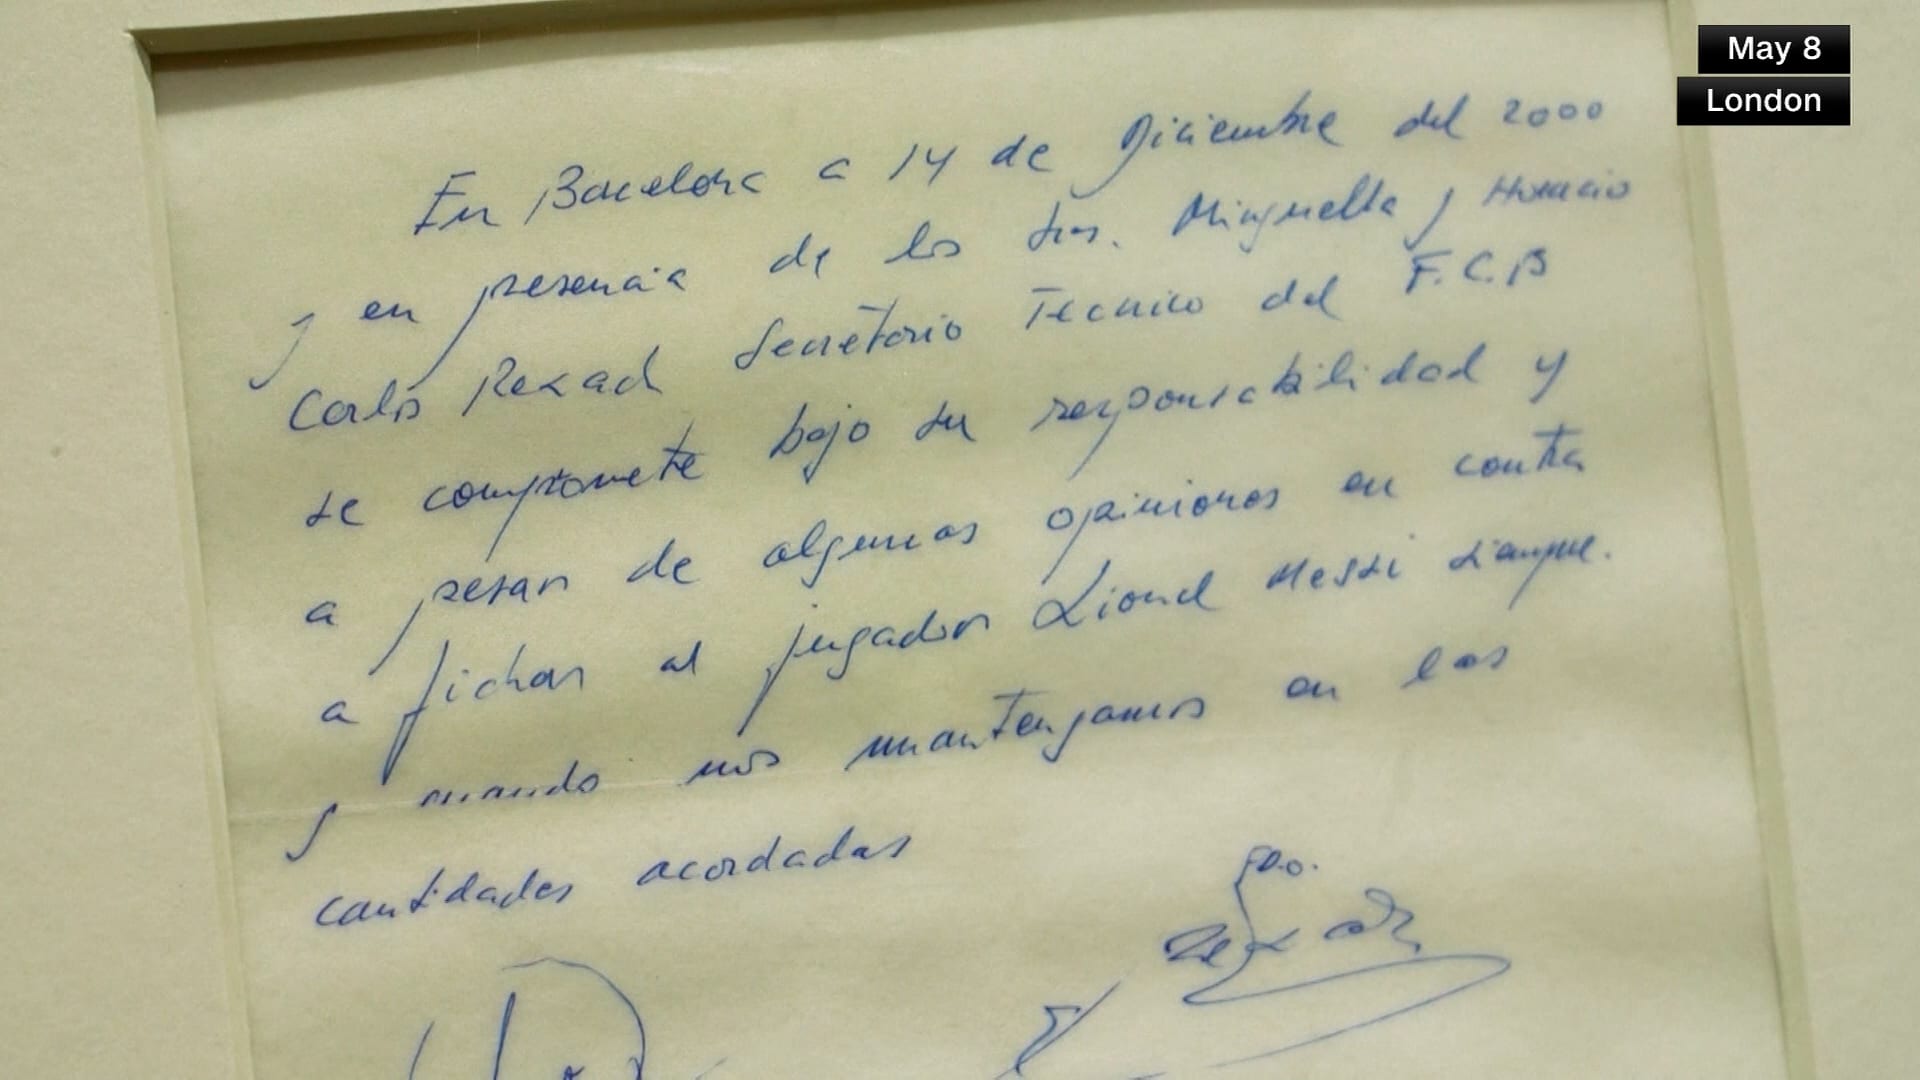 May 8
London
En Barcelona a 14 de Diciembre del 2000
y en presencia de los Srs. Minguella y Horacio
Carlos Rexach Secretario Tecnico del F.C.B
se compromete bajo su responsabilidad y
a pesar de algunas opiniones en contra
a fichar al jugador Lionel Messi siempre.
y cuando nos mantengamos en las
cantidades acordadas
FDo.
Rexach